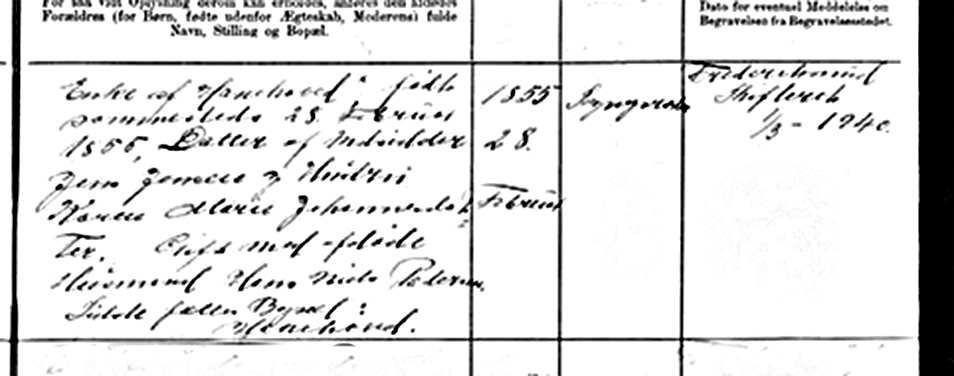 For saa vidt Oplysning derom kan erholdes, anføres den afdødes
Forældres (for Børn, fødte udenfor Ægteskab, Moderens) fulde
Navn, Stilling og Bopæl.
Dato for eventuel Meddelelse om
Begravelsen fra Begravelsesstedet.
Enke af født
sammesteds 28 Februar
1855, Datter af Indsidder
Jens Jensen og Hustru
Karen Marie Johannesdat
ter. Gift med afdøde
Husmand Hans Niels Pedersen,
Sidste fælles Bopæl:
1855
28.
Februar
Skifteret
1/3 - 1940.